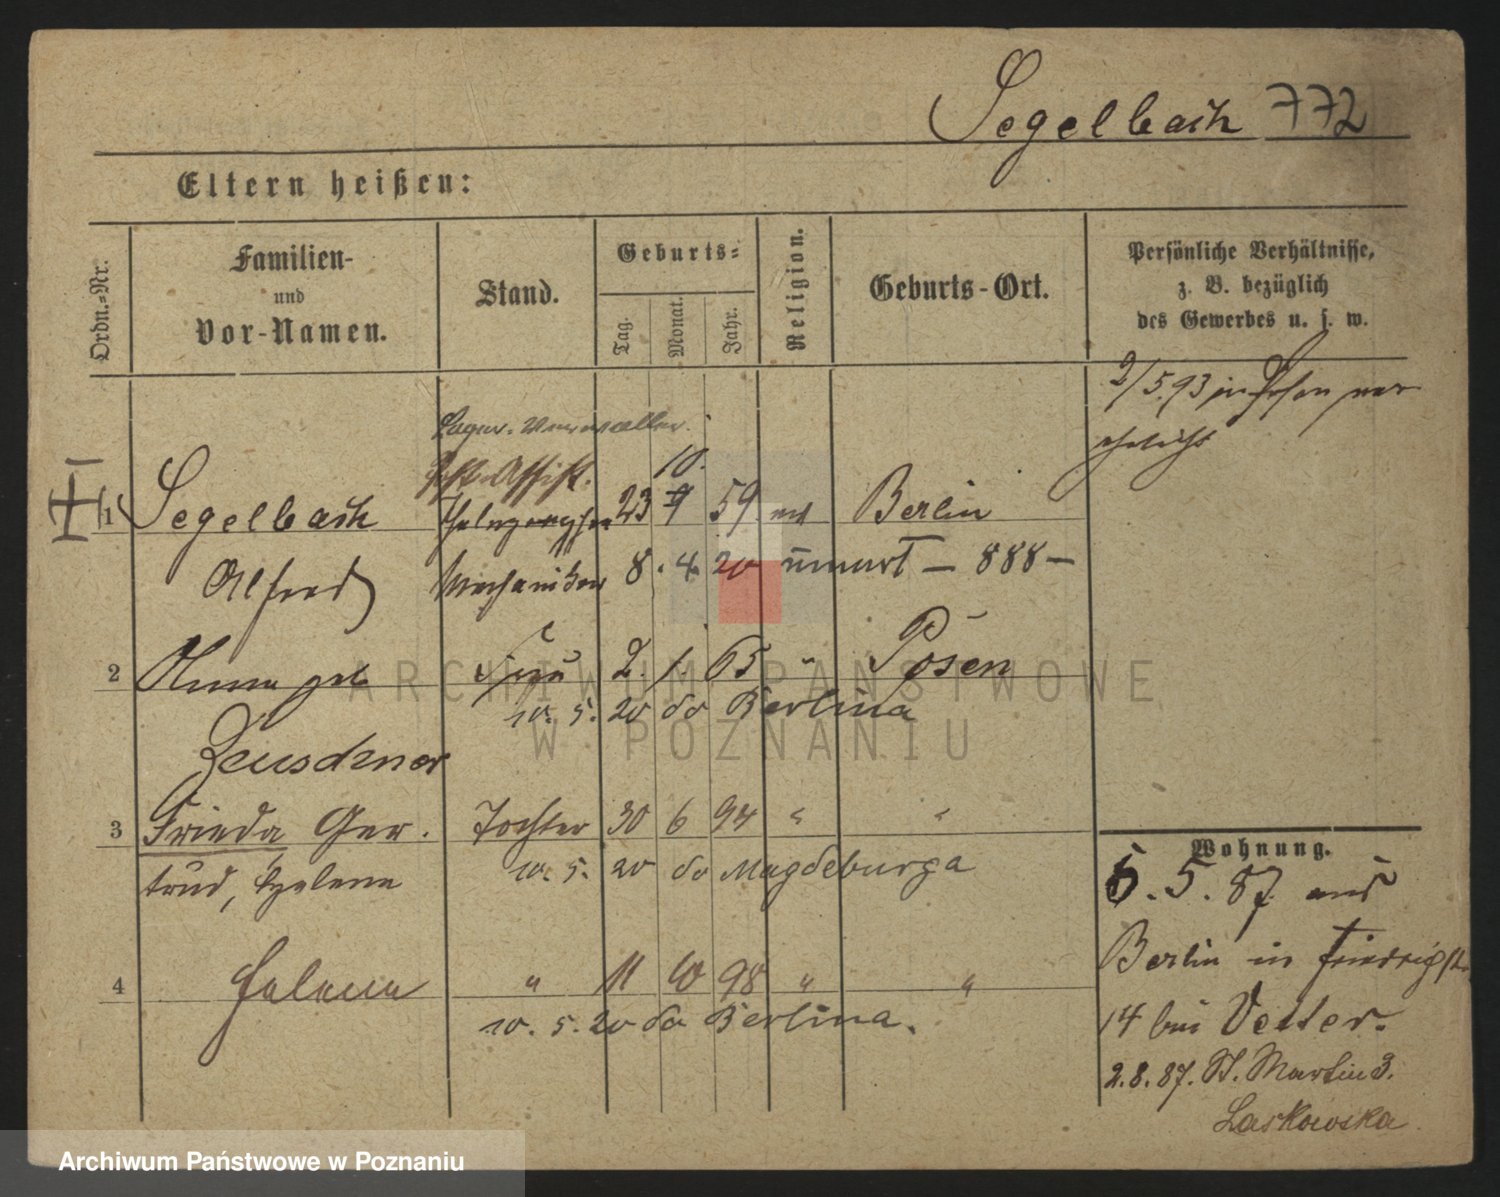 Segelbach 772
Eltern heißen:
Ordn.-Nr.
Familien-
und
Vor-Namen.
Stand.
Geburts-
Tag.
Monat.
Jahr.
Religion.
Geburts-Ort.
Persönliche Verhältnisse,
z. B. bezüglich
des Gewerbes u. s. w.
2/5.93 in Posen ver
ehelicht
Lager-Verwalter.
Assist. 10.
1 Segelbach 23 9 59 ev Berlin
Alfred Mechaniker 8. 4. 20 umarł – 888 –
2 Anna geb. Frau 2. 1. 65 " Posen
10. 5. 20 do Berlina
Zeusdener
3 Frieda Ger- Tochter 30 6 94 " "
trud, Helene 10. 5. 20 do Magdeburga
4 Helene " 11 10 98 " "
10. 5. 20 do Berlina.
Wohnung.
6. 5. 87 aus
Berlin in Friedrichst.
14 bei Vetter.
2. 8. 87. St. Martin 3.
Laskowska
ARCHIWUM PAŃSTWOWE
W POZNANIU
Archiwum Państwowe w Poznaniu